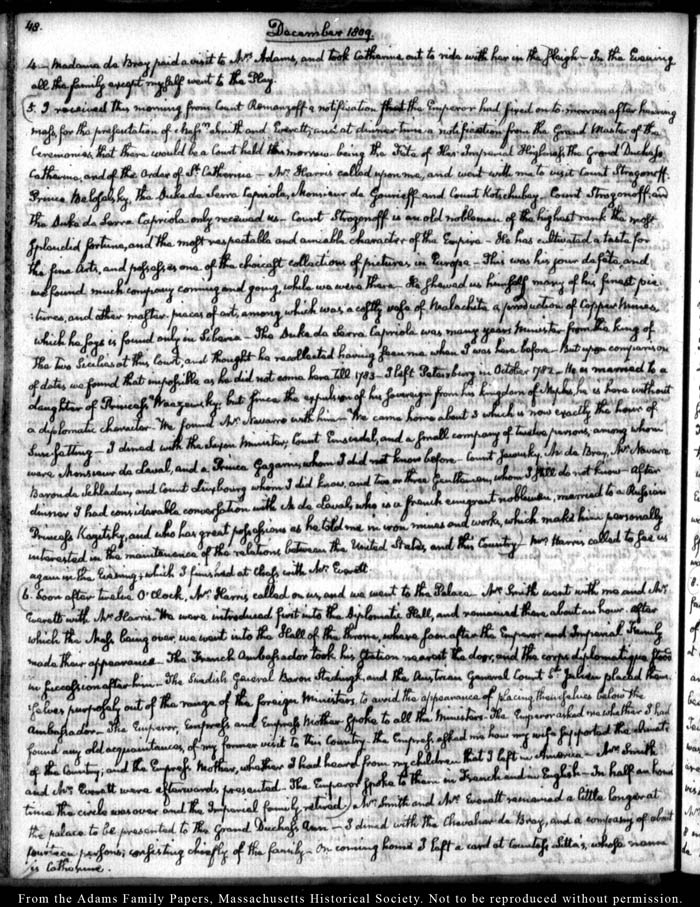 48.
December 1809.
4. Madame de Bray paid a visit to Mrs. Adams, and took Catherine out to ride with her in the Sleigh — In the Evening
all the family except myself went to the Play.
5. I received this morning from Count Romanzoff a notification that the Emperor had fixed on to-morrow after hearing
mass, for the presentation of Messrs. Smith and Everett; and at dinner time a notification from the Grand Master of the
Ceremonies, that there would be a Court held this morrow being the Fête of Her Imperial Highness, the Grand Duchess
Catherine, and of the Order of St. Catherine — Mr. Harris called upon me, and went with me to visit Count Strogonoff.
Prince Beloselsky, the Duke de Serra Capriola, Monsieur de Gourieff and Count Kotschubey. Count Strogonoff, and
the Duke de Serra Capriola only received us — Count Strogonoff is an old nobleman of the highest rank the most
splendid fortune, and the most respectable and amiable character of the Empire — He has cultivated a taste for
the fine Arts, and possesses one of the choicest collections of pictures, in Europe — This was his jour de fête and
we found much company coming and going, while we were there — He shewed us himself many of his finest pic-
:tures, and other master-pieces of art, among which, was a costly vase of Malachite a production of Copper Mines
which he says is found only in Siberia — The Duke de Serra Capriola was many years Minister from the King of
the two Sicilies at this Court, and thought he recollected having seen me when I was here before — But upon comparison
of dates we found that impossible as he did not come here till 1783 — I left Petersburg in October 1782 — He is married to a
daughter of Princess Waezemsky, but since the expulsion of his Sovereign from his kingdom of Naples, he is here without
a diplomatic character — We found Mr. Navarro with him — We came home about 3 which is now exactly the hour of
Sun-setting — I dined with the Saxon Minister, Count Einsiedel, and a small company of twelve persons, among whom
were Monsieur de Laval, and a Prince Gagarin, whom I did not know before — Count Jaousky, Mr. de Bray, Mr. Navarro
Baron de Schladen, and Count Luxbourg whom I did know, and two or three Gentlemen, whom I still do not know — After
dinner I had considerable conversation with Mr. de Laval, who is a french emigrant nobleman, married to a Russian
Princess Kozitsky, and who has great possessions as he told me in iron mines and works, which make him personally
interested in the maintenance of the relations between the United States, and this Country. Mr. Harris called to see us
again in the Evening; which I finished at Chess with Mr. Everett.
6. Soon after twelve O'Clock, Mr. Harris called on us, and we went to the Palace. Mr. Smith went with me and Mr.
Everett with Mr. Harris. We were introduced first into the Diplomatic Hall, and remained there about an hour. After
which the Mass being over, we went into the Hall of the throne, where soon after the Emperor and Imperial Family
made their appearance — The French Ambassador took his station nearest the door, and the corps diplomatique stood
in succession after him — The Swedish General Baron Stedingk, and the Austrian General Count St. Julien placed them-
:selves purposely out of the range of the foreign Ministers, to avoid the appearance of placing themselves below the
Ambassador — The Emperor, Empress and Empress Mother spoke to all the Ministers. The Emperor asked me whether I had
found any old acquaintances, of my former visit to this Country — the Empress asked me how my wife supported the climate
of the Country, and the Empress Mother, whether I had heard from my children that I left in America — Mr. Smith
and Mr. Everett were afterwards presented. The Emperor spoke to them in French and in English — In half an hour
time the circle was over and the Imperial family retired. Mr. Smith and Mr. Everett remained a little longer at
the palace to be presented to the Grand Duchess Ann — I dined with the Chevalier de Bray, and a company of about
fourteen persons; consisting chiefly of the family — On coming home I left a card at Countess Litta's, whose name
is Catherine.
From the Adams Family Papers, Massachusetts Historical Society. Not to be reproduced without permission.